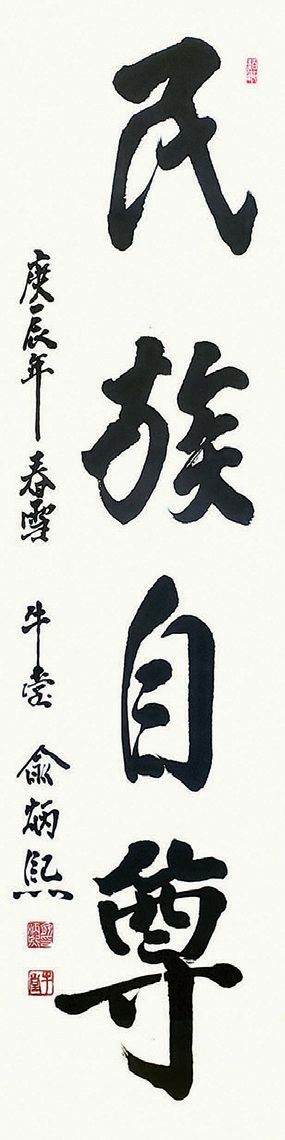 民族自尊
庚辰年 春雪 牛堂 兪炳